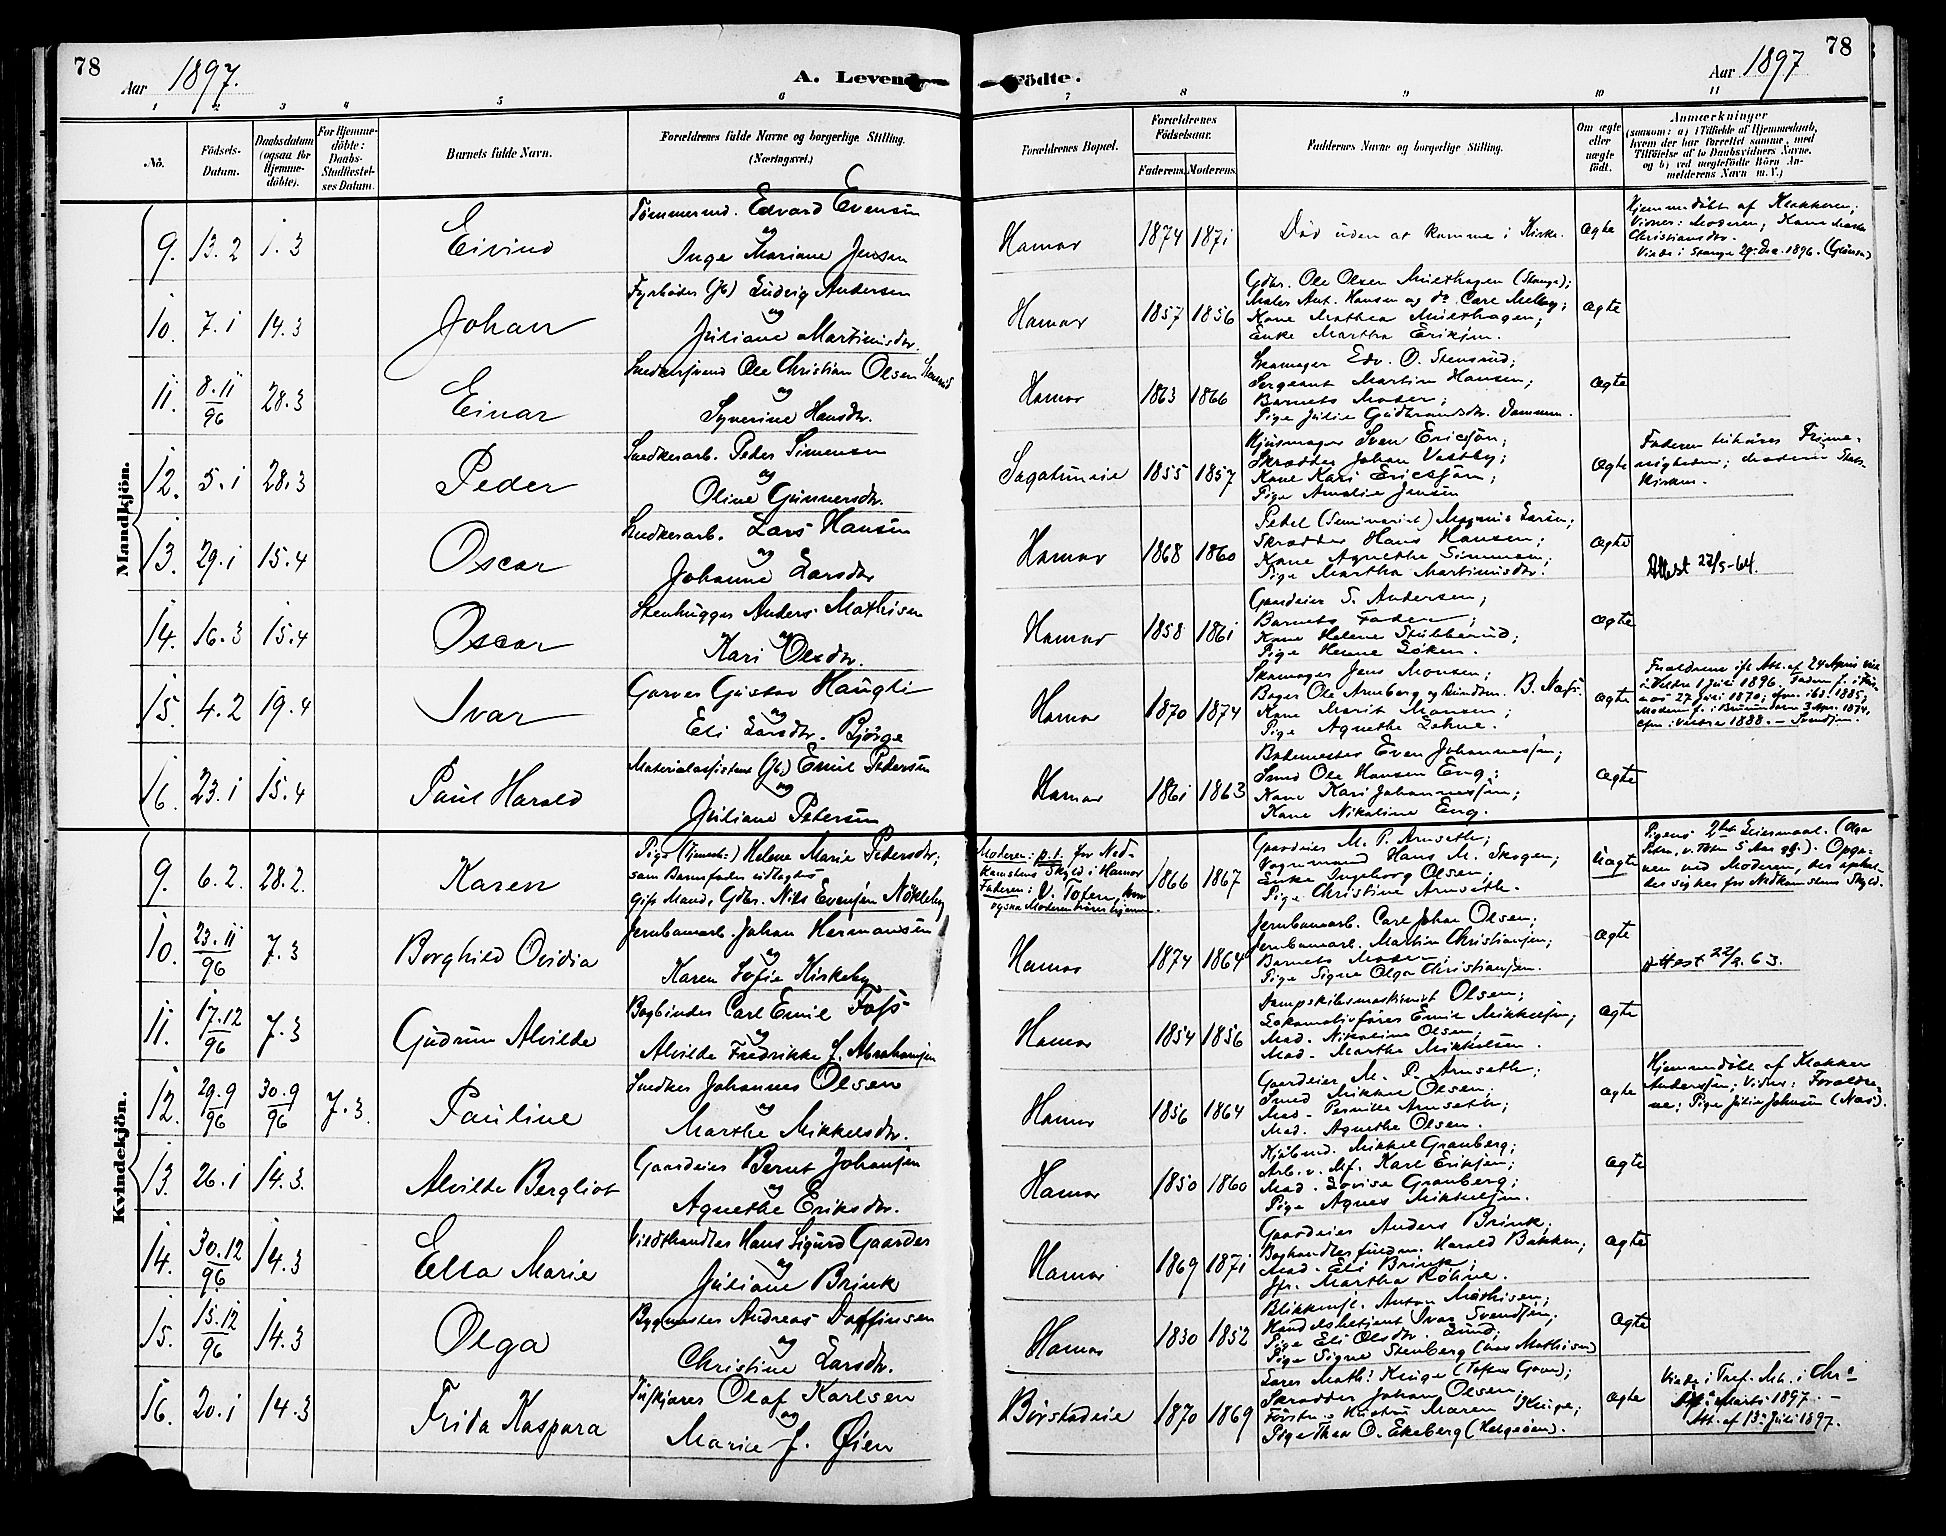 78
Aar 1897.
A. Levende Födte.
Aar 1897
78
1 2 3 4 5 6 7 8 9 10 11
No.
Födsels-Datum.
Daabsdatum (ogsaa for Hjemme-döbte).
For Hjemme-döbte: Daabs-Stadfæstel-ses Datum.
Barnets fulde Navn.
Forældrenes fulde Navne og borgerlige Stilling. (Næringsvei.)
Forældrenes Bopæl.
Forældrenes Födselsaar.
Faderens. Moderens.
Faddernes Navne og borgerlige Stilling.
Om ægte eller uægte födt.
Anmærkninger
(saasom: a) i Tilfælde af Hjemmedaab, hvem der har forrettet samme, med Tilföielse af to Daabsvidners Navne, og b) ved uægtefödte Börn An-melderens Navn m. V.)
Mandkjön.
9. 13.2 1.3
Eivind
Tømmermd. Edvard Evensen
og
Inga Mariane Jensen
Hamar 1874 1871
Død uden at komme i Kirke.
ægte
Hjemmedøbt af Klokkeren;
Vidner: Moderen,
Christiansdtr.
Viede i Stange 29. Dec. 1896.
10. 7.1 14.3
Johan
Fyrbøder (Jb) Ludvig Andersen
og
Juliane Martinusdtr.
Hamar 1857 1856
Gdbr. Ole Olsen Muelhagen (Stange);
Maler Ant. Hansen og do Carl Melby;
Kone Mathea Muelhagen;
Enke Martha Eriksen.
ægte
11. 8.11/96 28.3
Einar
Snedkersvend Ole Christian Olsen
og
Syverine Hansdtr.
Hamar 1863 1866
Skomager Edv. O. Stensrud;
Sergeant Martin Hansen;
Barnets Moder;
Pige Julie Gudbrandsdtr. Dammen.
ægte
12. 5.1 28.3
Peder
Snedkerarb. Peder Simensen
og
Oline Gunnersdtr.
Sagatuneie 1855 1857
Hjulmager Sven Ericsson;
Skrædder Johan Vestby;
Kone Kari Ericsson;
Pige Amalie Jensen
ægte
Faderen tilhører Frime-
nigheden; Moderen Stats-
kirken.
13. 29.1 15.4
Oscar
Snedkerarb. Lars Hansen
og
Johanne Larsdtr
Hamar 1868 1860
Pedel (Seminariet) Magnus Larsen;
Skrædder Hans Hansen;
Kone Agnethe Simensen;
Pige Martha Martinusdtr.
ægte
Attest 22/5-64.
14. 16.3 15.4
Oscar
Stenhugger Anders Mathisen
og
Kari Olsdtr.
Hamar 1858 1861
Gaardeier S. Andersen;
Barnets Fader;
Kone Helene Stubberud;
Pige Helene Løken.
ægte
15. 4.2 19.4
Ivar
Garver Gustav Haugli
og
Eli Larsdtr. Bjørge
Hamar 1870 1874
Skomager Jens Monsen;
Bager Ole Arnberg og Kundsm. B. Næss.
Kone Marit Monsen;
Pige Agnethe Lehne.
ægte
Forældrene ifl. Att. af 24 April viet
i Veldre 1 Juli 1896. Faderen f. i
27 Juli 1870; cfm. ibd. 1885,
Moderen f. i Brumunddalen 3 Apr. 1874,
cfm. i Veldre 1888.
16. 23.1 15.4
Paul Harald
Materialassistent (Jb.) Emil Pedersen
og
Juliane Petersen
Hamar 1861 1863
Bademester Even Johannessen;
Smed Ole Hansen Eng;
Kone Kari Johannessen;
Kone Nikoline Eng.
ægte
Kvindekjön.
9. 6.2. 28.2.
Karen
Pige (Tjenest.) Helene Marie Pedersdtr;
som Barnefader udlagdes
gift Mand, Gdbr. Nils Evensen Nökleby
Moderen: p.t. for Ned-
komstens Skyld i Hamar
Faderen: V. Toten, hvor
ogsaa Moderen hører hjemme.
1866 1867
Gaardeier M. P. Arnseth;
Vognmand Hans M. Skogen;
Enke Ingeborg Olsen;
Pige Christine Arnseth.
uægte
Pigens 2det Leiermaal. (Olga
Petra, V. Toten 5 Aar gl.). Opga-
ven ved Moderen, der ophol-
der sig her for Nedkomstens Skyld.
10. 23.11/96 7.3
Borghild Ovidia
Jernbanearb. Johan Hermansen
og
Karen Sofie Kirkeby
Hamar 1874 1864
Jernbanearb. Carl Johan Olsen;
Jernbanearb. Martin Christiansen;
Barnets Moder;
Pige Signe Olga Christiansen.
ægte
Attest 22/2.63.
11. 17.12/96 7.3
Gudrun Alvilde
Bogbinder Carl Emil Foss
og
Alvilde Fredrikke f. Abrahamsen
Hamar 1854 1856
Dampskibsmaskinist Olsen;
Lokomotivfører Emil Mikkelsen;
Mad. Nikoline Olsen;
Mad. Marthe Mikkelsen.
ægte
12. 29.9/96 30.9/96 7.3.
Pauline
Snedker Johannes Olsen
og
Marthe Mikkelsdtr.
Hamar 1856 1864
Gaardeier M. P. Arnseth;
Smed Mikkel Olsen;
Mad. Pernille Arnseth;
Mad. Agnethe Olsen.
ægte
Hjemmedøbt af Klokker
Anderssen; Vidner: Forældre-
ne; Pige Julie Johnsen (Næs).
13. 26.1 14.3.
Alvilde Bergliot
Gaardeier Bernt Johansen
og
Agnethe Eriksdtr.
Hamar 1850 1860
Kjøbmd. Mikkel Granberg;
Arb. v. Mf. Karl Eriksen;
Mad. Lovisa Granberg;
Pige Agnes Mikkelsen.
ægte
14. 30.12/96 14.3
Ella Marie
Vildthandler Hans Sigurd Gaarder
og
Juliane Brink
Hamar 1869 1871
Gaardeier Anders Brink;
Boghandlerfuldm. Harald Bakken;
Mad. Eli Brink;
Jfr. Martha Röhne.
ægte
15. 15.12/96 14.3
Olga
Bygmester Andreas Daffinssen
og
Christine Larsdtr.
Hamar 1830 1852
Blikkensl. Anton Mathisen;
Handelsbetjent Ivar Svendsen;
Pige Eli Olsdtr. Lund;
Pige Signe Stenberg (hos Mathisen)
ægte
16. 20.1 14.3
Frida Kaspara
Pudskjører Olaf Karlsen
og
Marie f. Øien
Børstadeie 1870 1869
Lærer Math. Kinge (Toftes Gave);
Skrædder Johan Olsen;
Førstn.s Hustru Maren Kinge;
Pige Thea O. Ekeberg (Helgøen).
ægte
Viede i Tref. Mh. i Chra
Marts 1897.
Att. af 13 Juli 1897.